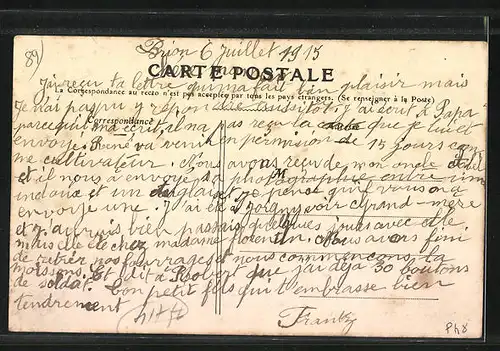 89
Brion 6 Juillet 1915
CARTE POSTALE
La Correspondance au recto n'est pas acceptée par tous les pays étrangers. (Se renseigner à la Poste)
J'ai reçu ta lettre qui m'a fait bien plaisir mais
je n'ai pas pu y répondre aussitôt, j'ai écrit à Papa
Correspondance
parce qu'il m'a écrit, il n'a pas reçu la carte que je lui ai
envoyé. René va venir en permission de 15 jours com
me cultivateur. Nous avons reçu de mon oncle
et il nous a envoyé sa photographie entre un
indoux et un anglais je pense qu'il vous en a
envoyé une. J'ai été à Joigny voir grand-mère
et j'aurais bien passé quelques jours avec elle
mais elle est chez madame. Nous avons fini
de rentrer nos fourrages et nous commençons la
moisson. Et dit à Robert que j'ai déjà 30 boutons
de soldat. Ton petit fils qui t'embrasse bien
tendrement
Frantz
P48